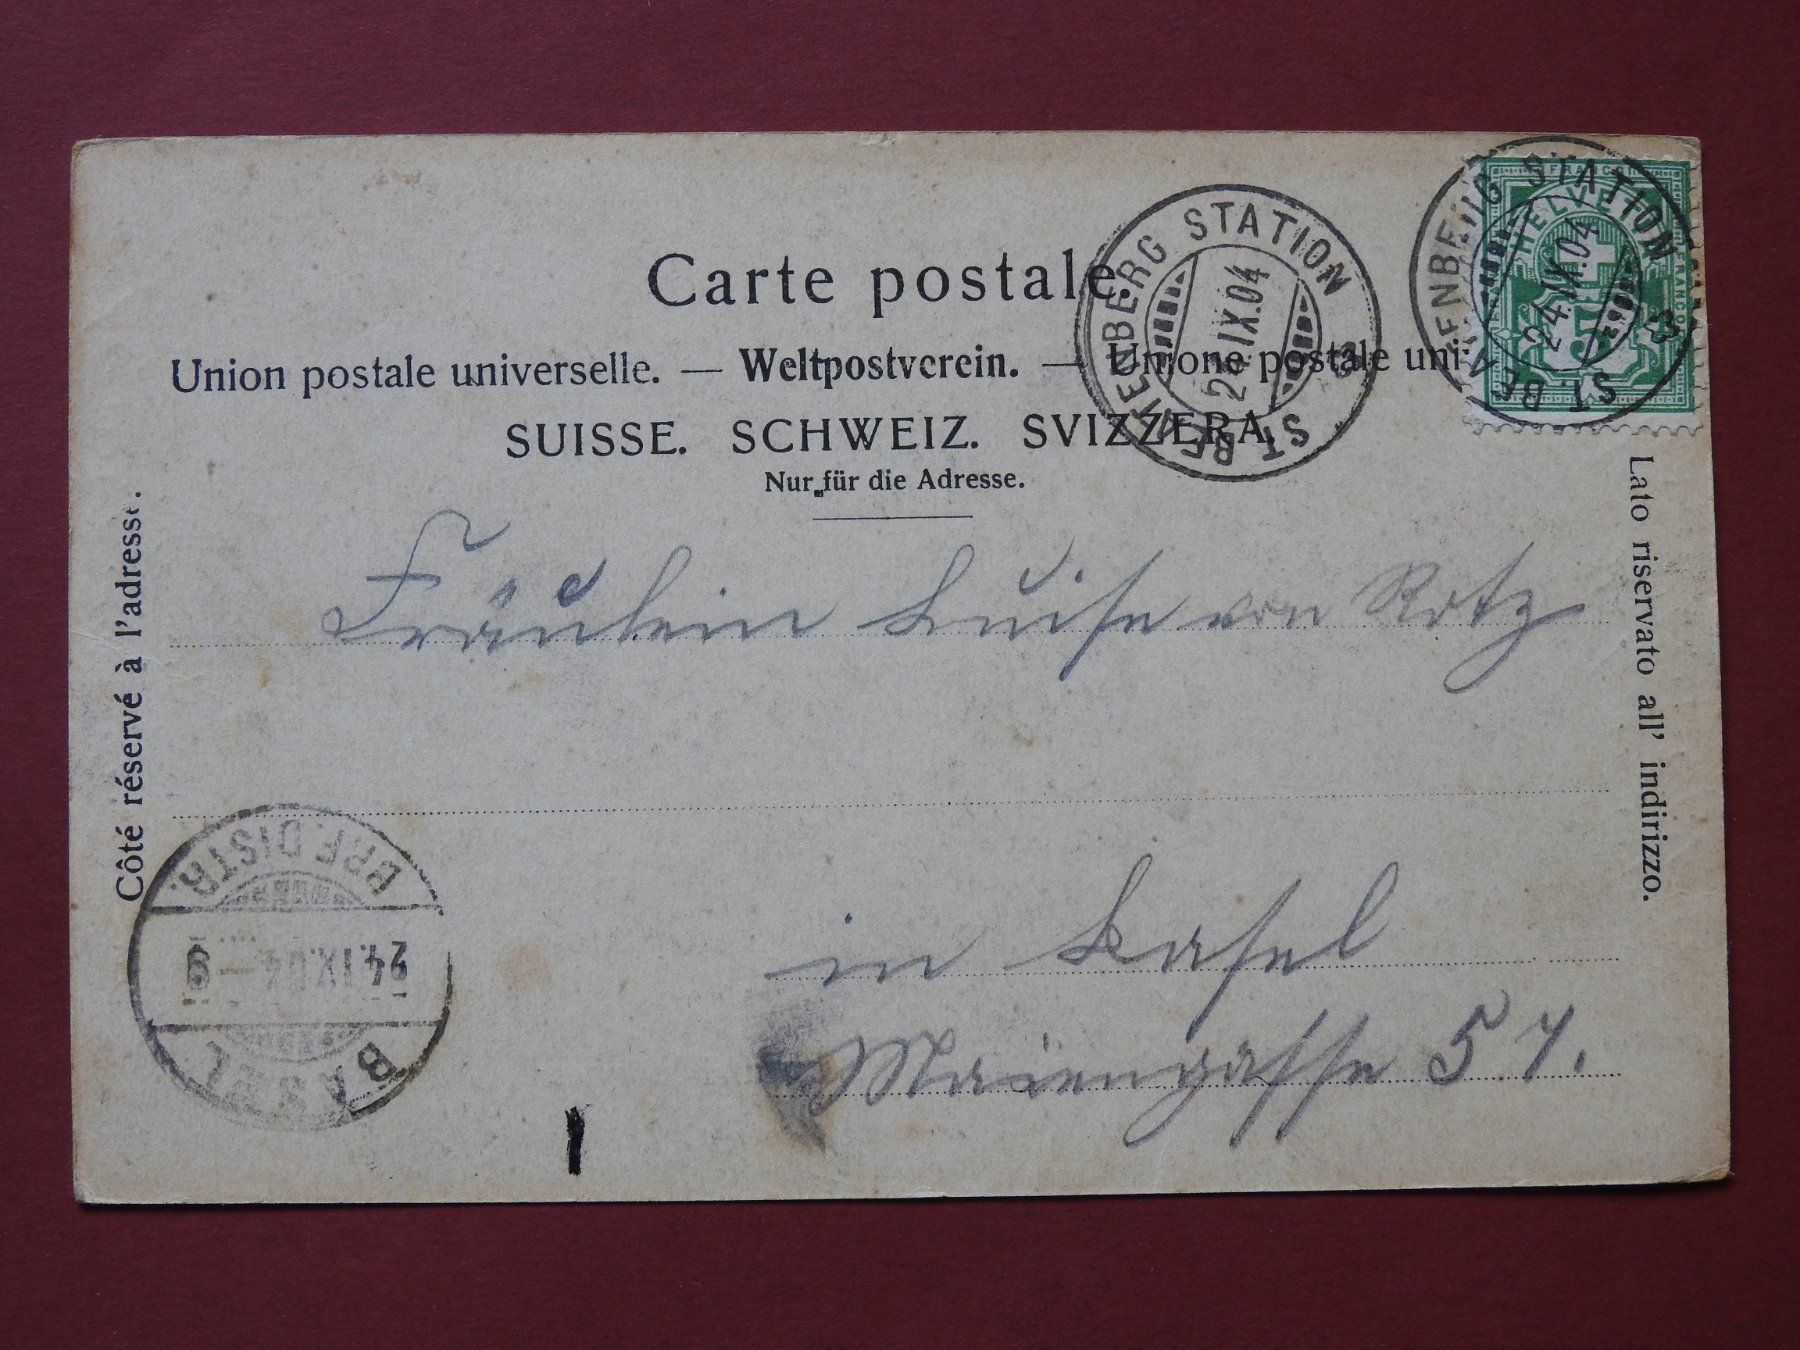 Carte postale
Union postale universelle. — Weltpostverein. — Unione postale uni
SUISSE. SCHWEIZ. SVIZZERA.
Nur für die Adresse.
Côté réservé à l'adresse.
Lato riservato all' indirizzo.
ST. BEATENBERG STATION
24.IX.04
ST. BEATENBERG STATION
24.IX.04
FRANCO
HELVETIA
5
Fräulein Luise von Rotz
in Basel
Maiengasse 57.
BRF. DISTR.
24.IX.04 – 9
BASEL